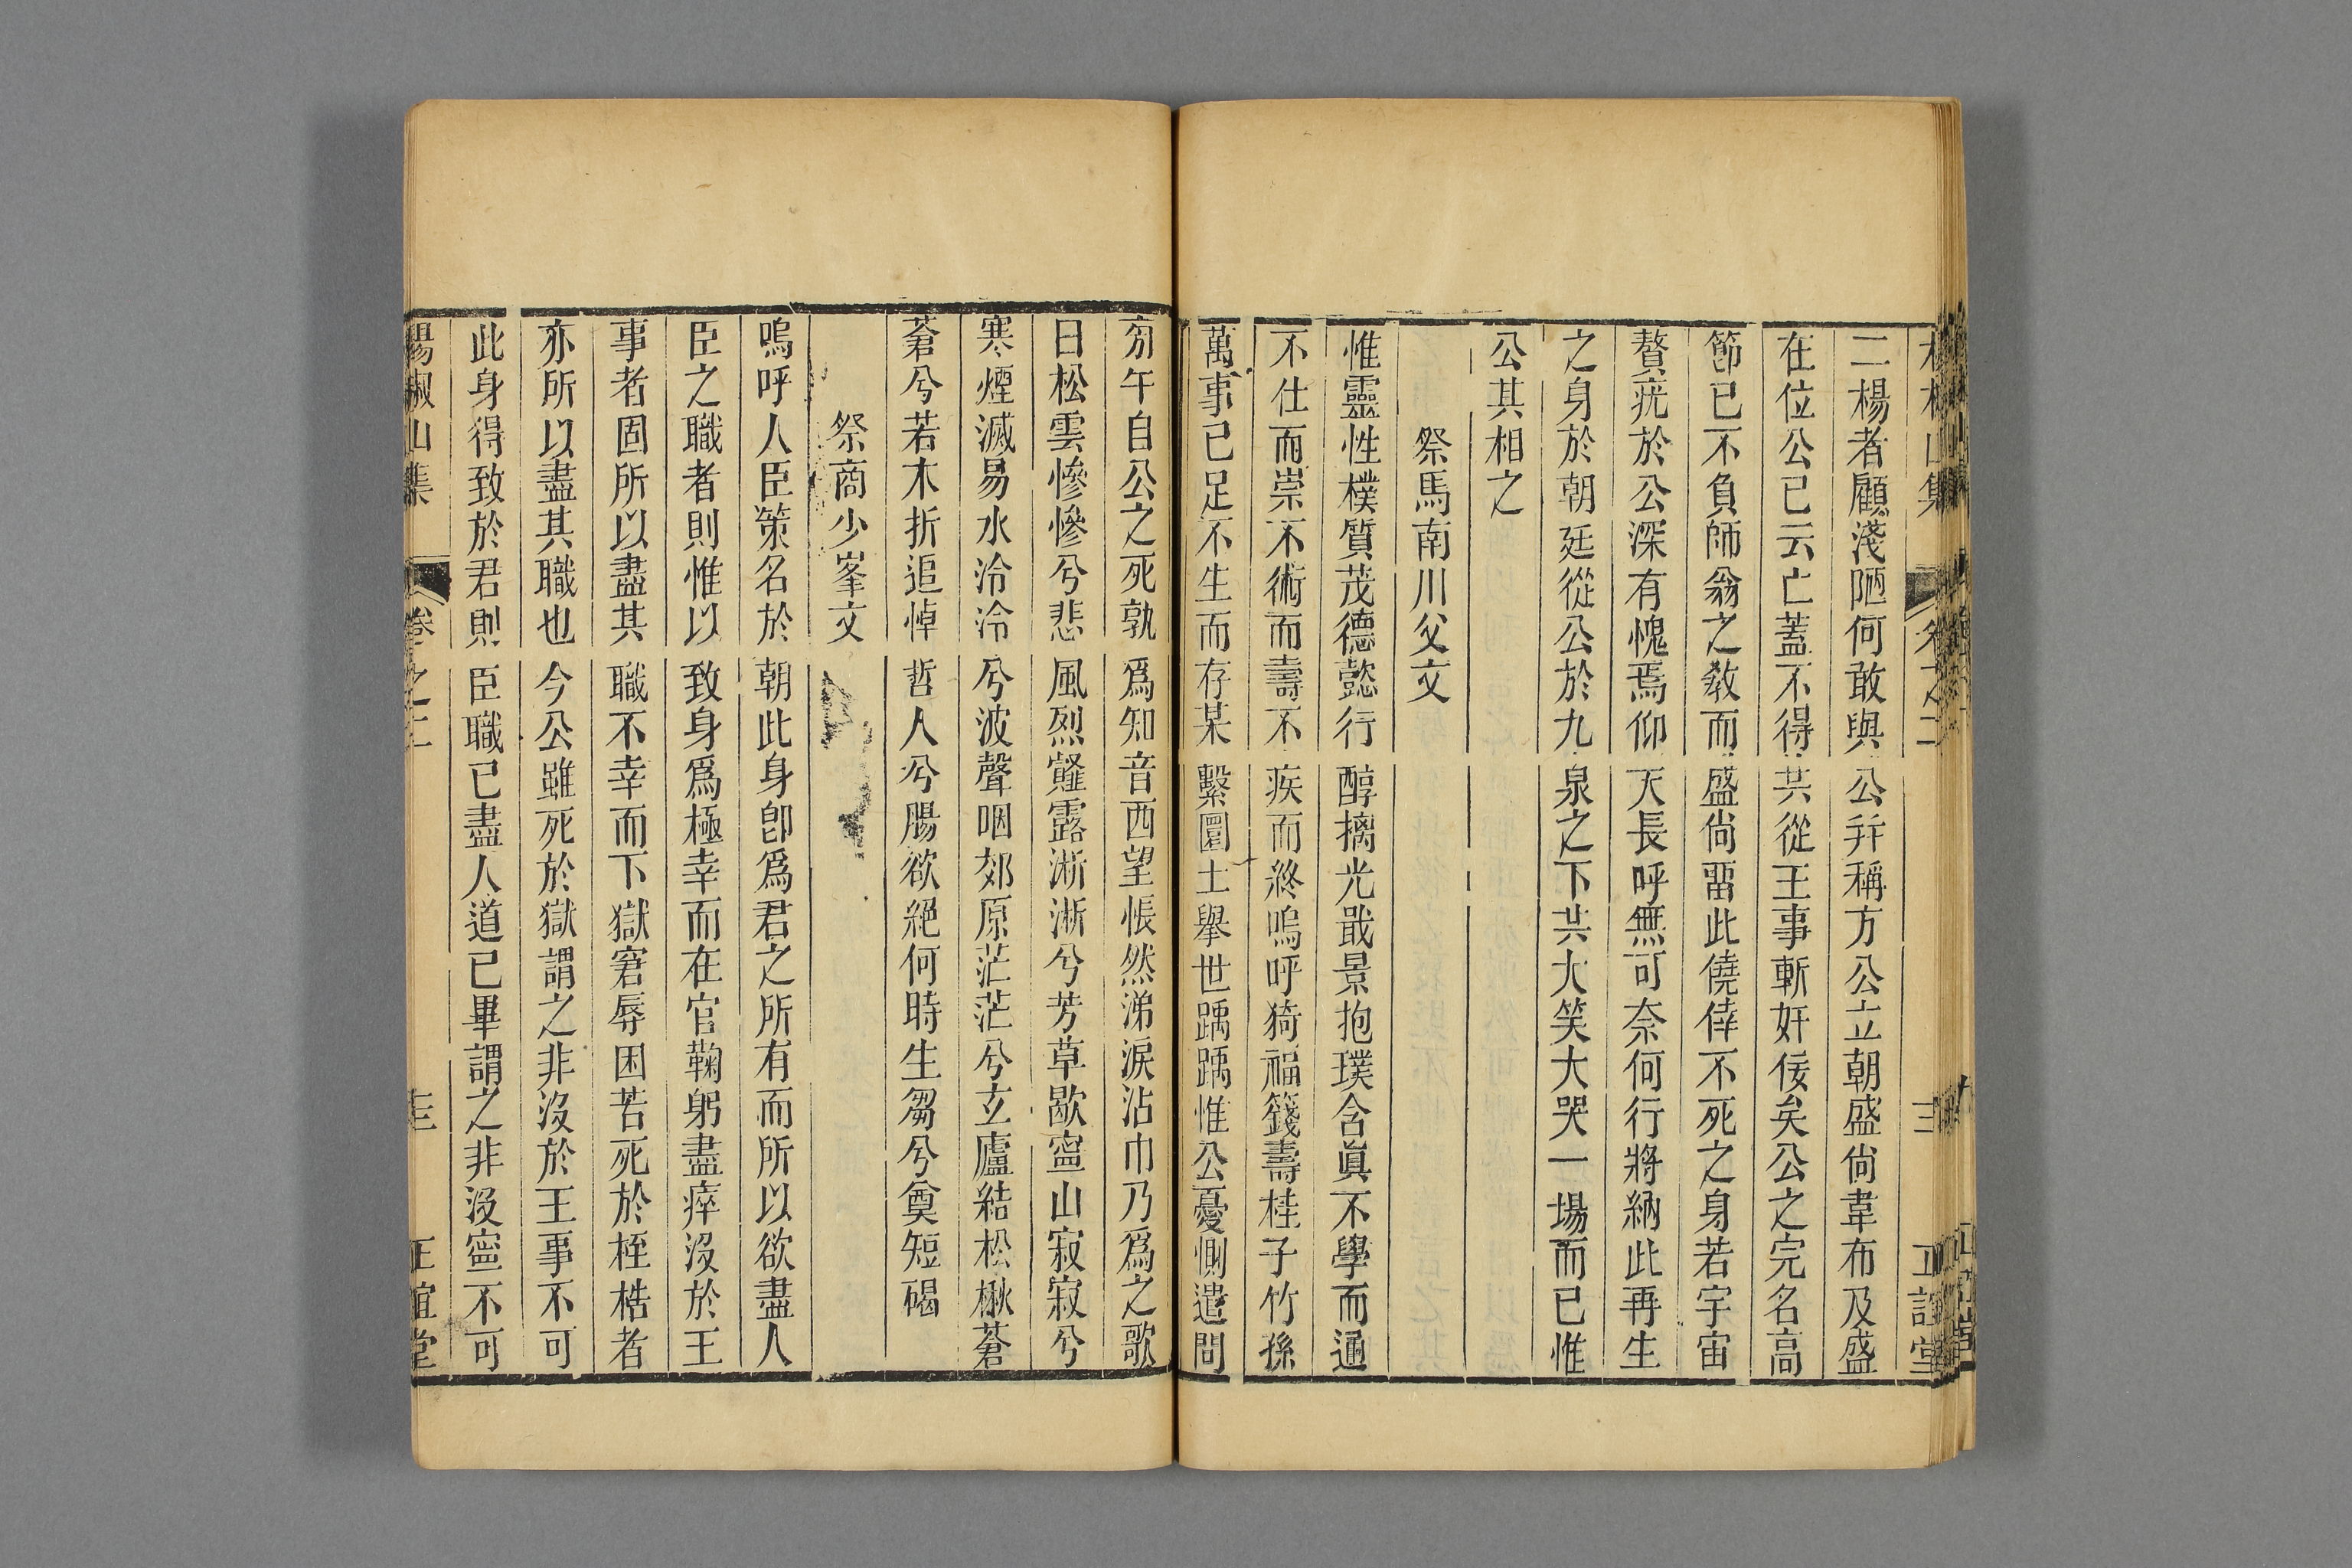 二楊者顧淺陋何敢與公幷稱方公立朝盛尙韋布及盛
在位公已云亡蓋不得共從王事斬奸佞矣公之完名高
節已不負師翁之敎而盛尙畱此僥倖不死之身若宇宙
贅疣於公深有愧焉仰天長呼無可奈何行將納此再生
之身於朝廷從公於九泉之下共大笑大哭一場而已惟
公其相之
祭馬南川父文
惟靈性樸質茂德懿行醇摛光戢景抱璞含眞不學而通
不仕而崇不術而壽不疾而終嗚呼猗福籛壽桂子竹孫
萬事已足不生而存某繫圜土舉世踽踽惟公憂惻遣問
旁午自公之死孰爲知音西望悵然涕淚沾巾乃爲之歌
曰松雲慘慘兮悲風烈薤露淅淅兮芳草歇寍山寂寂兮
寒煙滅易水泠泠兮波聲咽郊原茫茫兮玄廬結松楸蒼
蒼兮若木折追悼哲人兮腸欲絕何時生芻兮奠短碣
祭商少峯文
嗚呼人臣策名於朝此身卽爲君之所有而所以欲盡人
臣之職者則惟以致身爲極幸而在官鞠躬盡瘁沒於王
事者固所以盡其職不幸而下獄窘辱困苦死於桎梏者
亦所以盡其職也今公雖死於獄謂之非沒於王事不可
此身得致於君則臣職已盡人道已畢謂之非沒寍不可
楊椒山集 卷之二 正誼堂